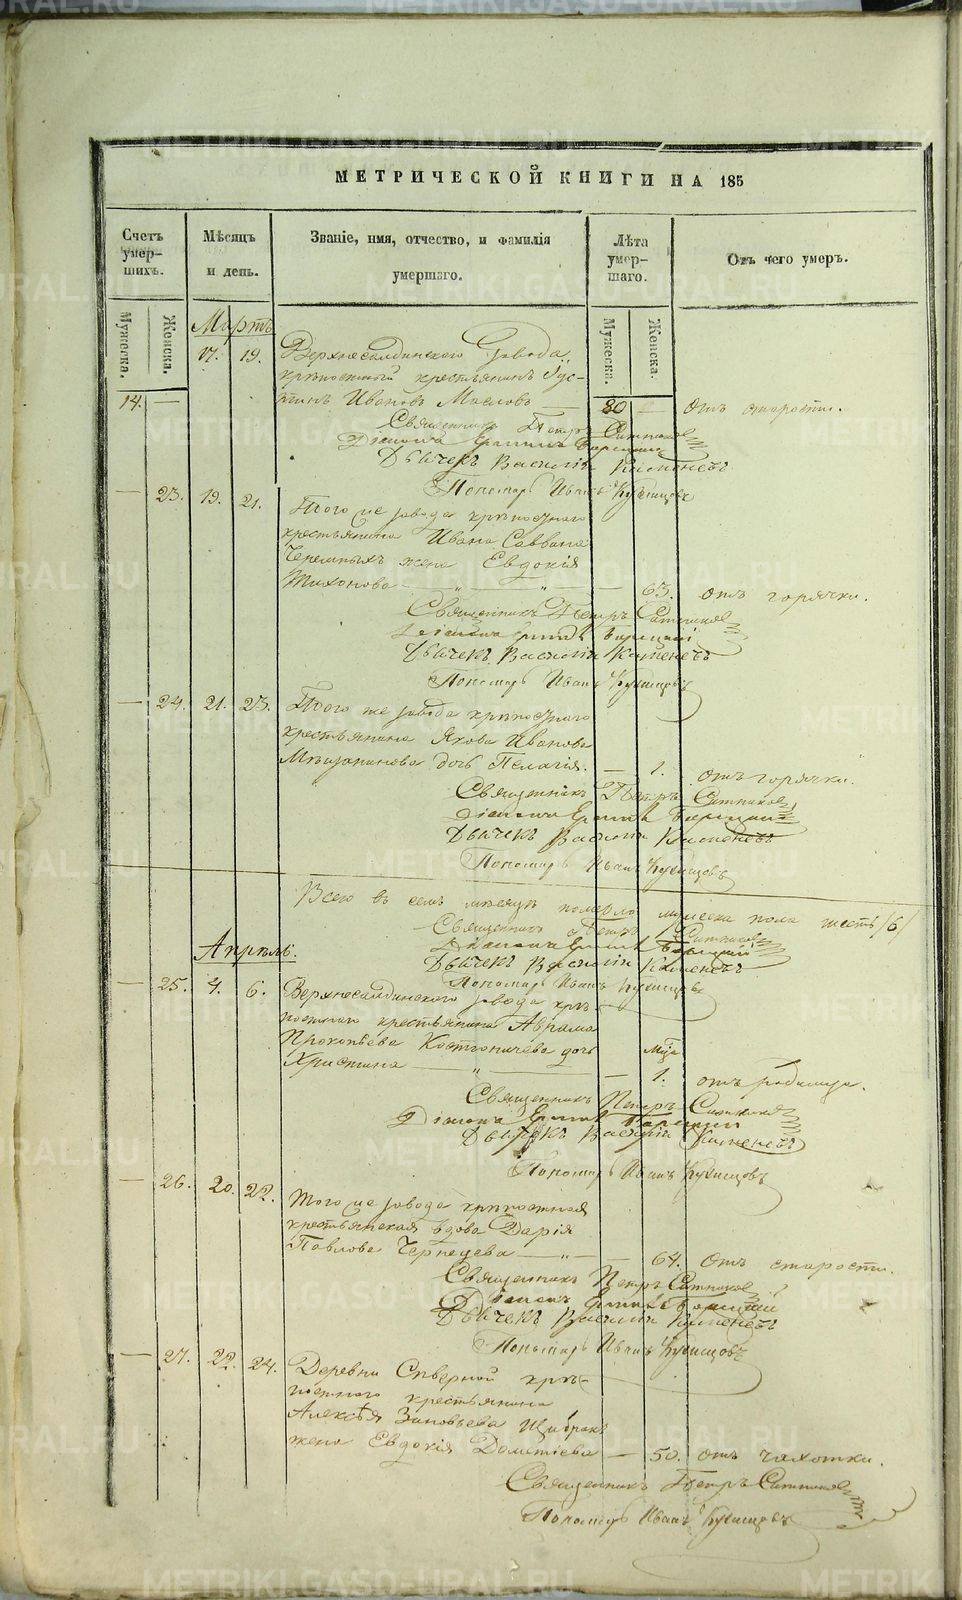 МЕТРИЧЕСКОЙ КНИГИ НА 185
Счетъ умер-шихъ.
Мѣсяцъ и день.
Званіе, имя, отчество, и фамилія умершаго.
Лѣта умер-шаго.
Отъ чего умеръ.
Мужеска.
Женска.
Мужеска.
Женска.
Мартъ
17. 19. Верхнесалдинского завода
крѣпостный крестьянинъ Іус-
14. — тинъ Ивановъ Масловъ 80 Отъ старости.
Священникъ Петръ Ситниковъ
Діаконъ
Дьячекъ Василій Каменевъ
Пономарь Иванъ Кузнецовъ
— 23. 19. 21. Того же завода крѣпостнаго
крестьянина Ивана Саввина
Черемныхъ жена Евдокія
Тихонова — 63. отъ горячки.
Священникъ Петръ Ситниковъ
Діаконъ
Дьячекъ Василій Каменевъ
Пономарь Иванъ Кузнецовъ
— 24. 21. 23. Того же завода крѣпостнаго
крестьянина Якова Иванова
дочь Пелагія. — 1. отъ горячки.
Священникъ Петръ Ситниковъ
Діаконъ
Дьячекъ Василій Каменевъ
Пономарь Иванъ Кузнецовъ
Всего въ семъ мѣсяцѣ померло мужеска пола шесть /6/
Священникъ Петръ Ситниковъ
Діаконъ
Дьячекъ Василій Каменевъ
Пономарь Иванъ Кузнецовъ
Апрѣль.
— 25. 4. 6. Верхнесалдинского завода крѣ-
постнаго крестьянина Аврама
Прокопьева дочь Мца
Христина — 1. отъ родимца.
Священникъ Петръ Ситниковъ
Діаконъ
Дьячекъ Василій Каменевъ
Пономарь Иванъ Кузнецовъ
— 26. 20. 22. Того же завода крѣпостная
крестьянская вдова Дарія
Павлова — 64. Отъ старости.
Священникъ Петръ Ситниковъ
Діаконъ
Дьячекъ Василій Каменевъ
Пономарь Иванъ Кузнецовъ
— 27. 22. 24. Деревни Сѣверной крѣ-
постного крестьянина
Алексѣя Зиновьева
жена Евдокія — 50. отъ чахотки.
Священникъ Петръ Ситниковъ
Пономарь Иванъ Кузнецовъ
METRIKI.GASO-URAL.RU